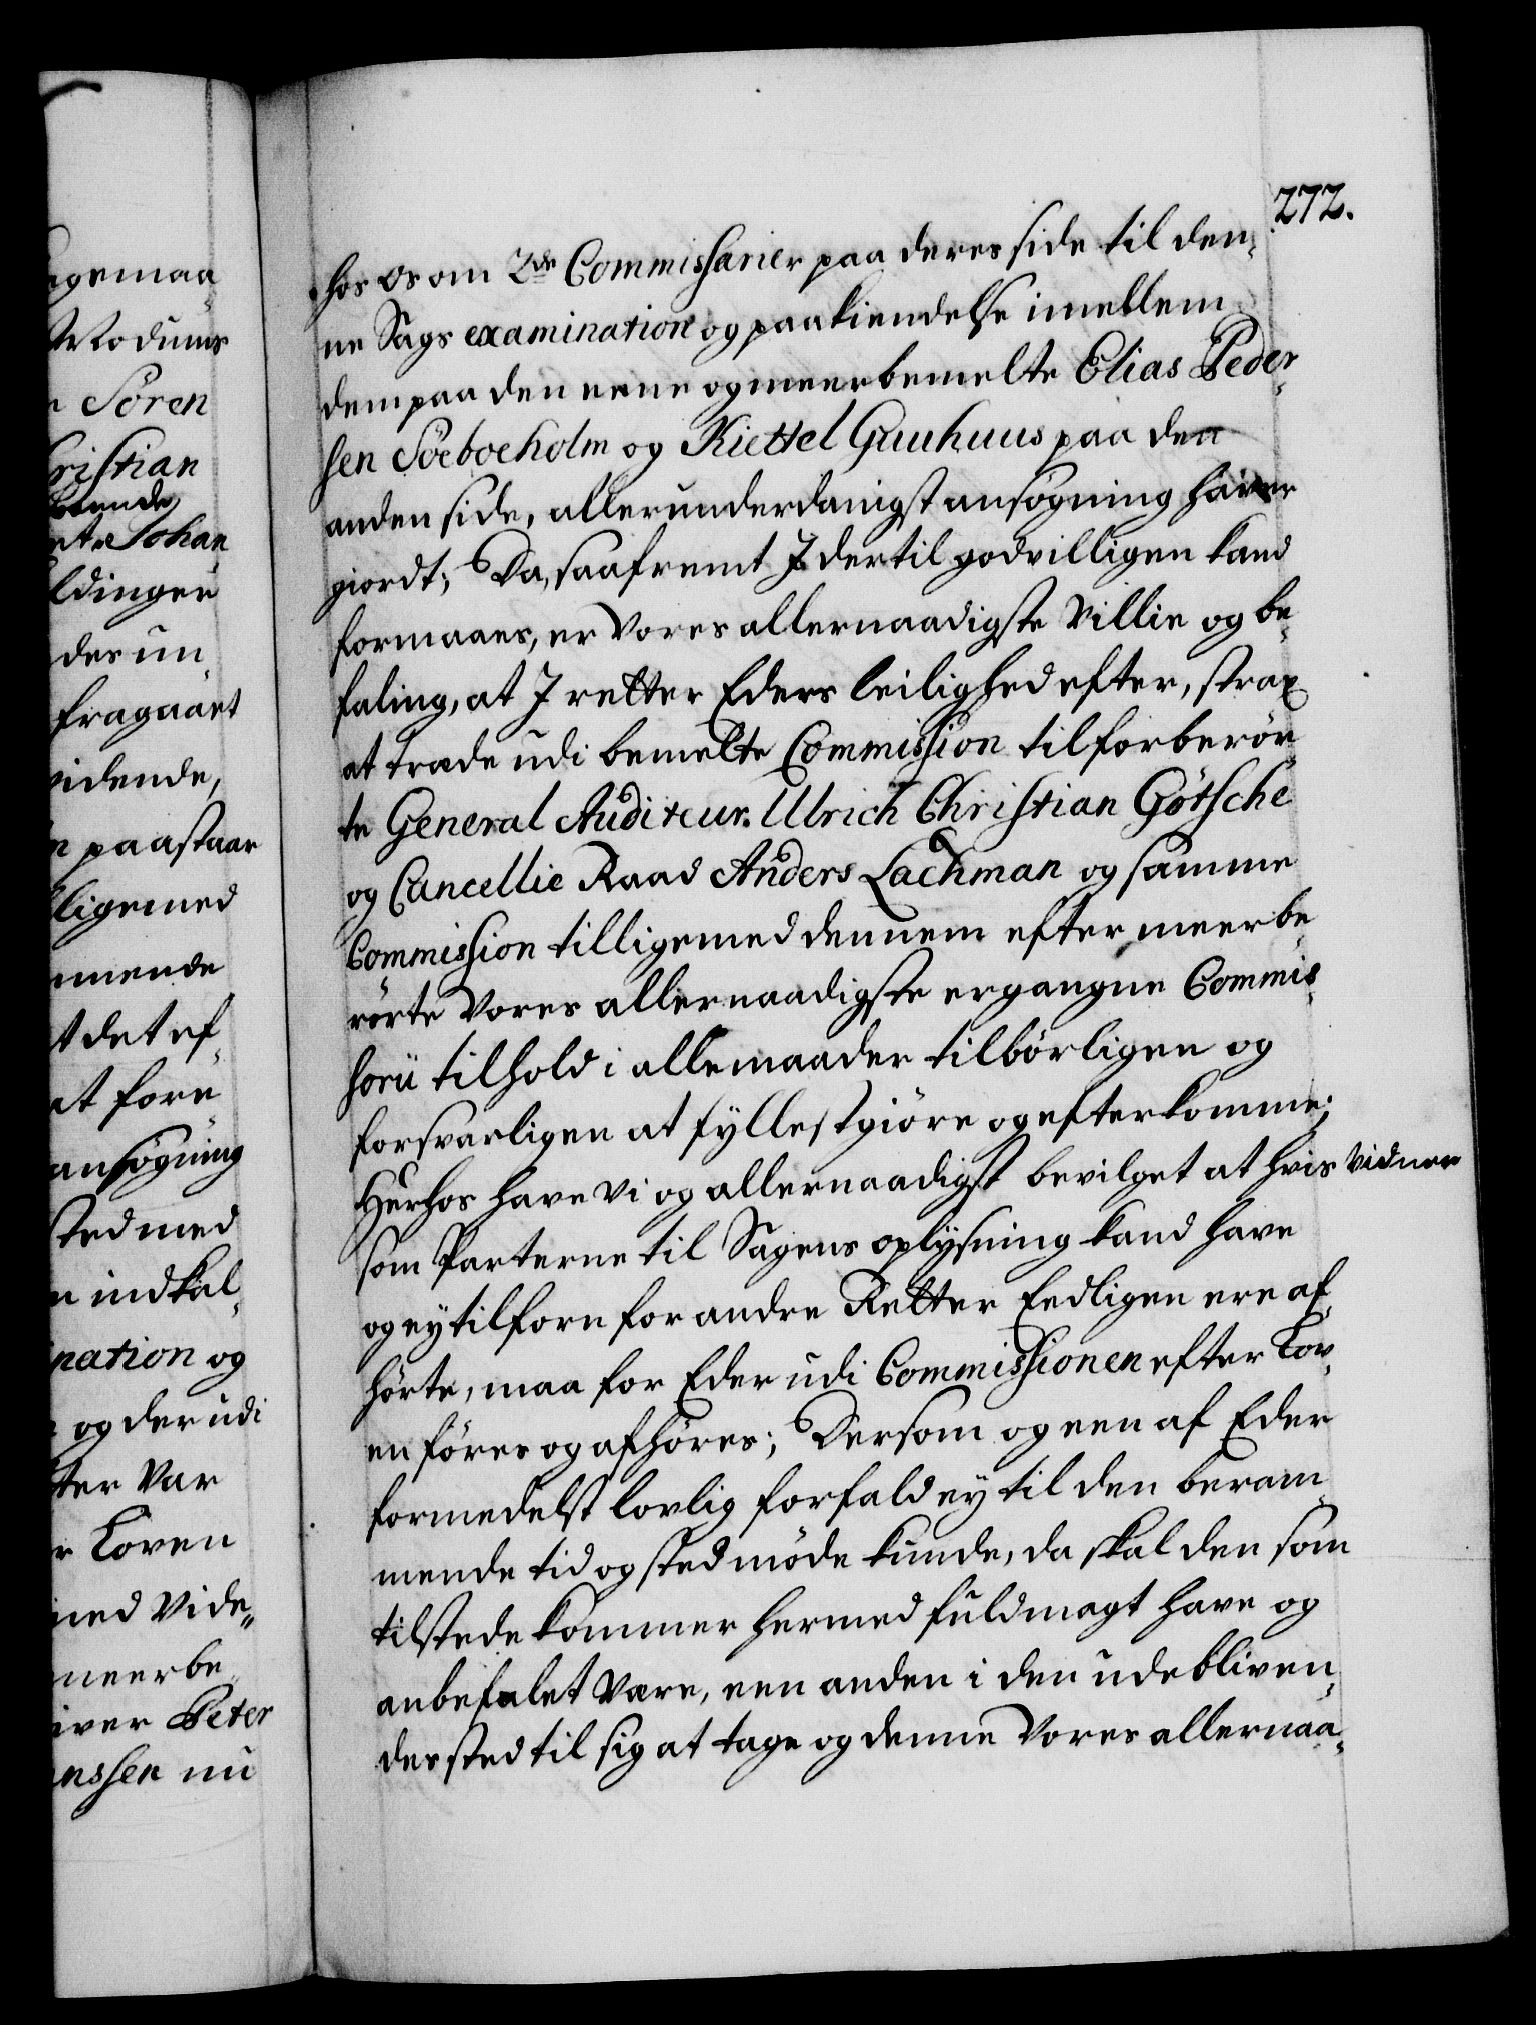 272.
hos os om 2de Commissarier paa deres side til den¬
ne Sags examination og paakiendelse imellem
dem paa den eene og meerbemelte Elias Peder¬
sen Söeboeholm og Kiettel Guuhuus paa den
anden side, allerunderdanigst ansøgning haver
giordt; Da, saafremt I dertil godvilligen kand
formaaes, er Vores allernaadigste Villie og be¬
faling, at I retter Eders leilighed efter, strax
at træde udi bemelte Commission til forberör¬
te General Auditeur. Ulrich Christian Götsche
og Cancellie Raad Anders Lachman og samme
Commission tilligemed dennem efter meerbe¬
rörte Vores allernaadigste ergangne Commis¬
sorii tilhold i allemaader tilbörligen og
forsvarligen at fyllestgiöre og efterkomme;
Herhos have Vi og allernaadigst bevilget at hvis Vidner
som Parterne til Sagens oplysning kand have
og ey tilforn for andre Retter Eedligen ere af¬
hörte, maa for Eder udi Commissionen efter Lov¬
en föres og afhöres; Dersom og een af Eder
formedelst lovlig forfald ey til den beram¬
mende tid og sted möde kunde, da skal den som
tilstede kommer hermed fuldmagt have og
anbefalet være, een anden i den udebliven¬
des sted til sig at tage og denne Vores allernaa¬
agemaa¬
Sören
ristian
Johan
ldinger
des un¬
fragaaet
vidende,
paastaar
ligemed
mende
det ef¬
at fore¬
ansøgning
sted med
indkal¬
nation og
og der udi
ter Var
Loven
med Vide¬
meerbe¬
iver Peter
nssen nu